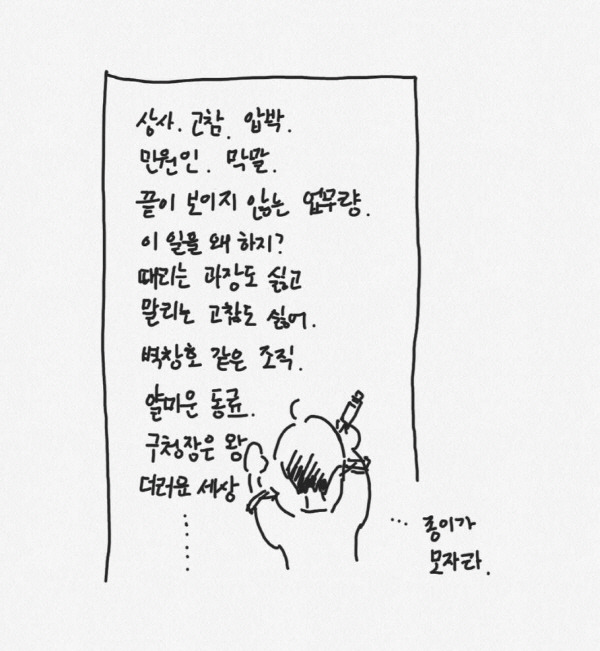 상사. 고참. 압박.
민원인. 막말.
끝이 보이지 않는 업무량.
이 일을 왜 하지?
때리는 과장도 싫고
말리는 고참도 싫어.
벽창호 같은 조직.
얄미운 동료.
구청장은 왕
더러운 세상
......
... 종이가
모자라.